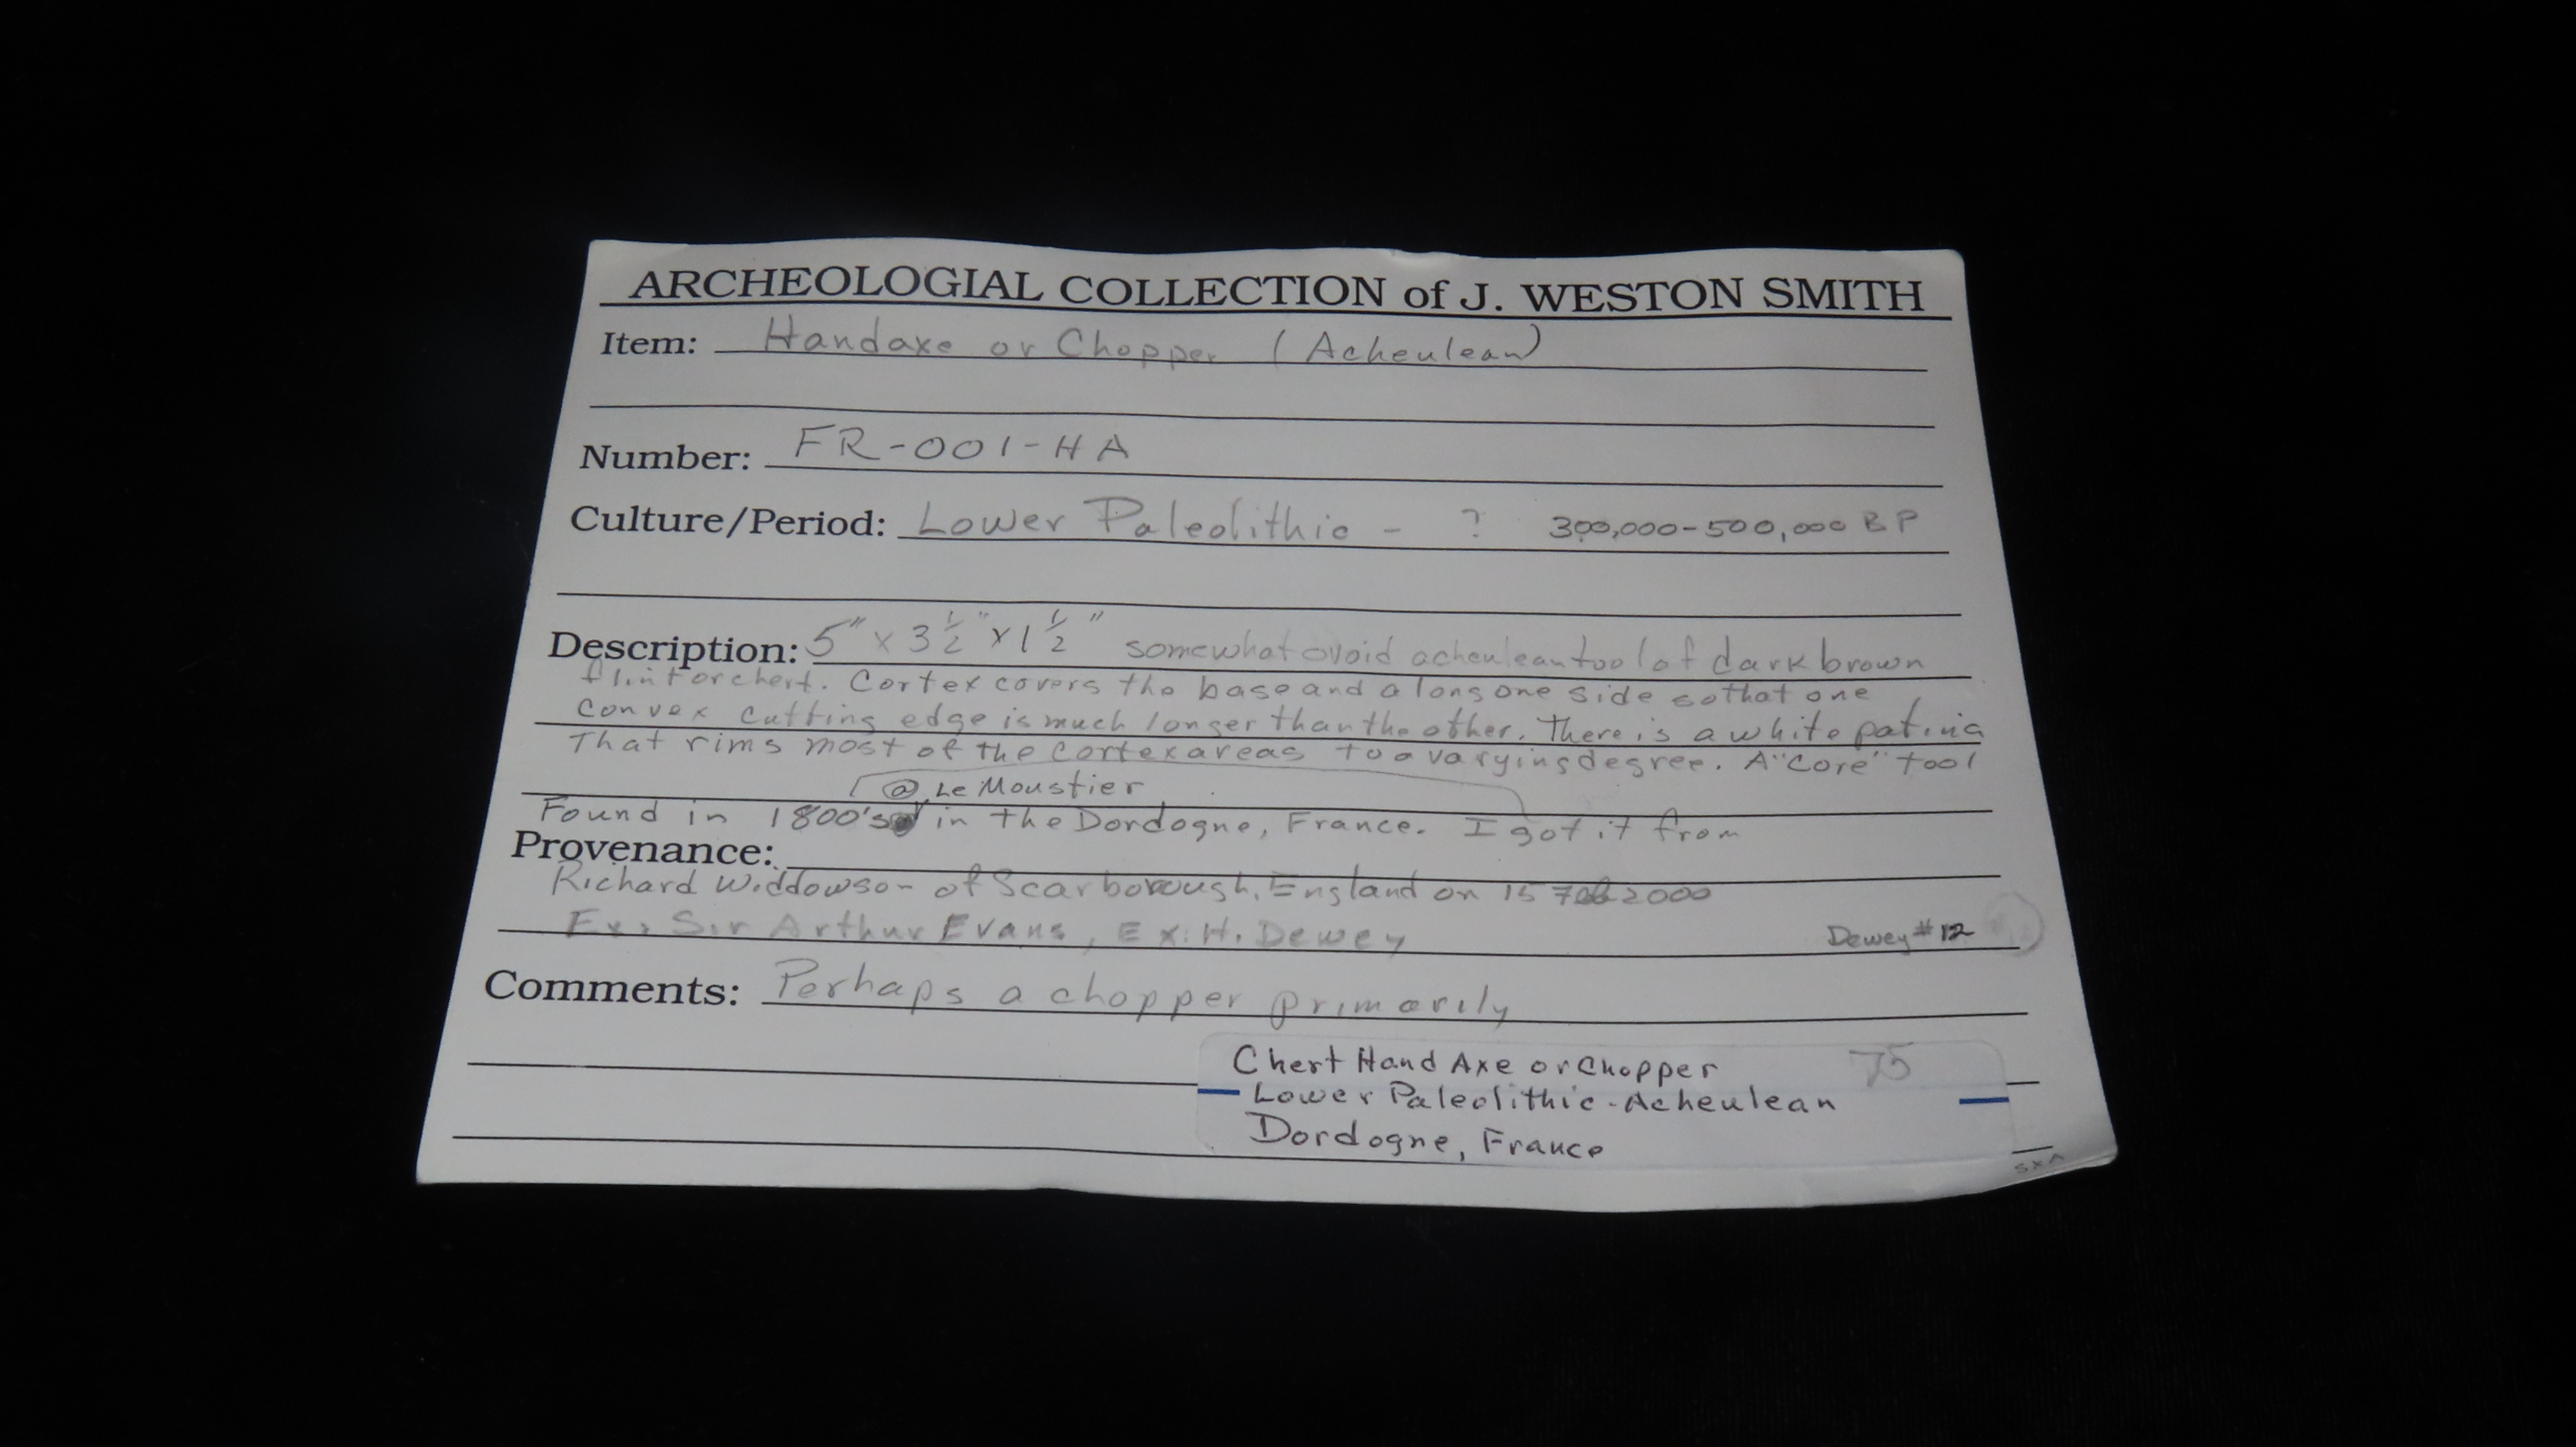 ARCHEOLOGIAL COLLECTION of J. WESTON SMITH
Item: Handaxe or Chopper (Acheulean)
Number: FR-001-HA
Culture/Period: Lower Paleolithic - ? 300,000-500,000 BP
Description: 5" x 3 1/2" x 1 1/2" somewhat ovoid acheulean tool of dark brown
flint or chert. Cortex covers the base and along one side so that one
convex cutting edge is much longer than the other. There is a white patina
That rims most of the cortex areas to a varying degree. A "Core" tool
@ Le Moustier
Found in 1800's in the Dordogne, France. I got it from
Provenance:
Richard Widdowson of Scarborough, England on 15 Feb 2000
Ex: Sir Arthur Evans, Ex: H. Dewey Dewey #12
Comments: Perhaps a chopper primarily
Chert Hand Axe or Chopper 75
Lower Paleolithic-Acheulean
Dordogne, France